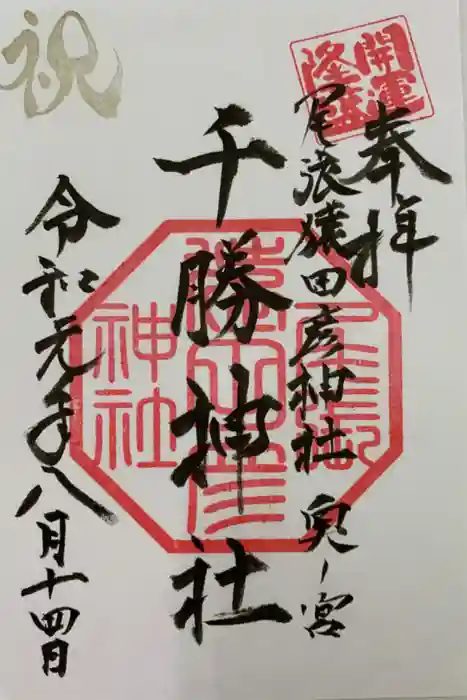 奉拝
開運
隆盛
尾張猿田彦神社 奥ノ宮
千勝神社
神社
令和元年八月十四日
祝